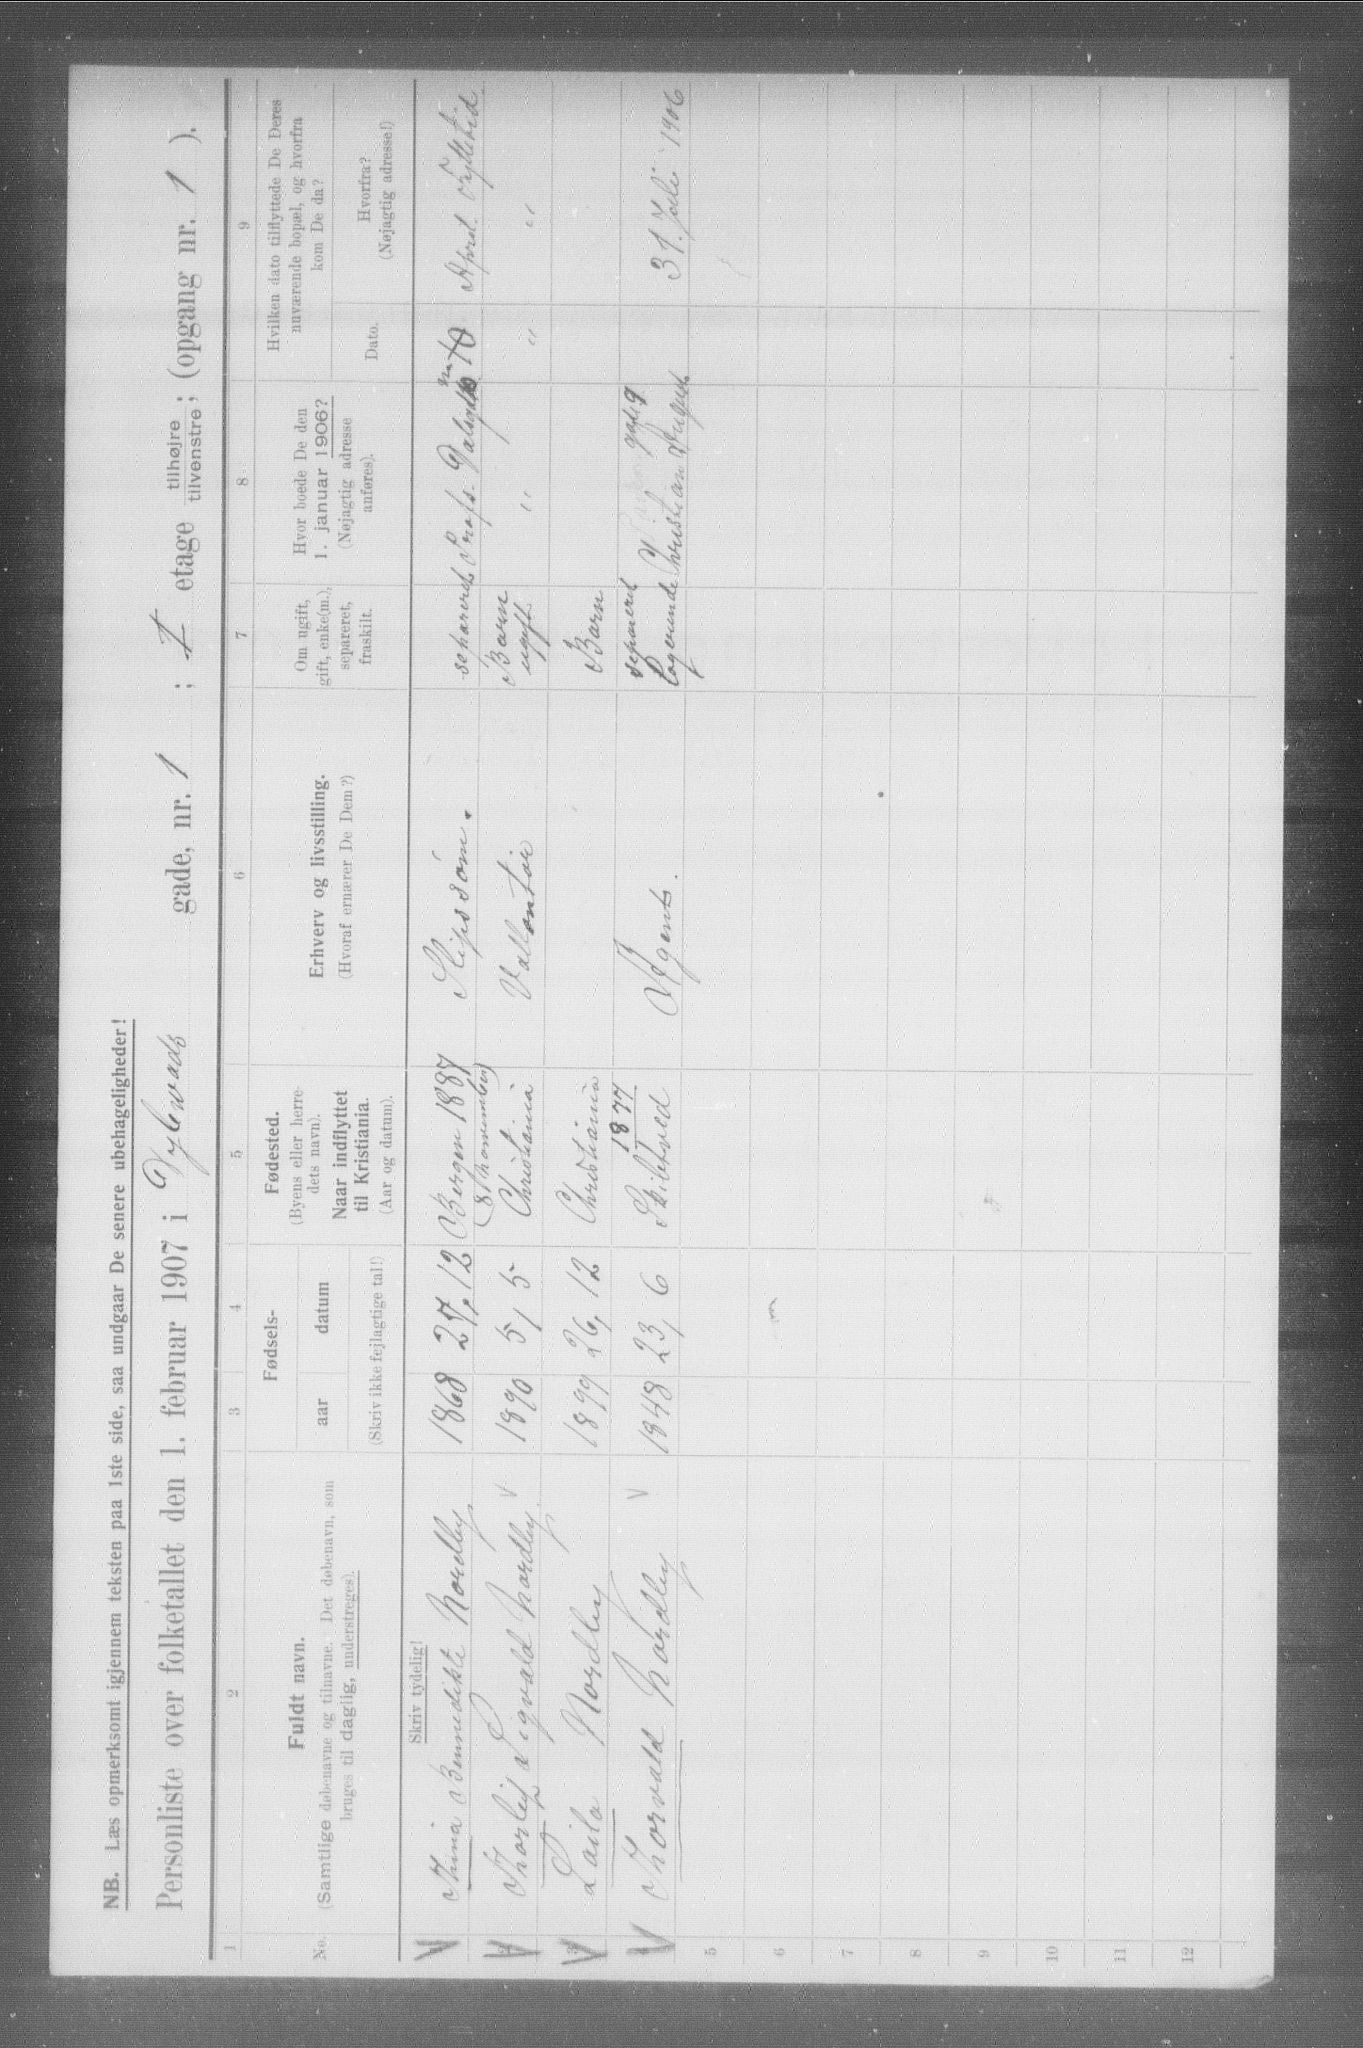 NB. Læs opmerksomt igjennem teksten paa 1ste side, saa undgaar De senere ubehageligheder!
Personliste over folketallet den 1. februar 1907 i gade, nr. 1 ; I etage tilhøjre tilvenstre; (opgang nr. 1 ).
1 2 3 4 5 6 7 8 9
No.
Fuldt navn.
(Samtlige døbenavne og tilnavne. Det døbenavn, som
bruges til daglig, understreges).
Fødsels-
aar datum
(Skriv ikke fejlagtige tal!)
Fødested.
(Byens eller herre-
dets navn).
Naar indflyttet
til Kristiania.
(Aar og datum).
Erhverv og livsstilling.
(Hvoraf ernærer De Dem?)
Om ugift,
gift, enke(m.),
separeret,
fraskilt.
Hvor boede De den
1. januar 1906?
(Nøjagtig adresse
anføres).
Hvilken dato tilflyttede De Deres
nuværende bopæl, og hvorfra
kom De da?
Dato.
Hvorfra?
(Nøjagtig adresse!)
Skriv tydelig!
Bennedikte Nordley 1868 27, 12 Bergen 1887 Slipssøm. separeret Profs. Dalsgt 10 April Flyttetid
(8 November)
Thorleif Sigvald Nordley 1890 5, 5 Christiania Vallontør Barn ugift " " "
Laila Nordley 1899 26, 12 Christiania Barn
Thorvald Nordley 1848 23, 6 1877 Skibtved Agent. separeret logerende 31. Juli 1906
5
6
7
8
9
10
11
12